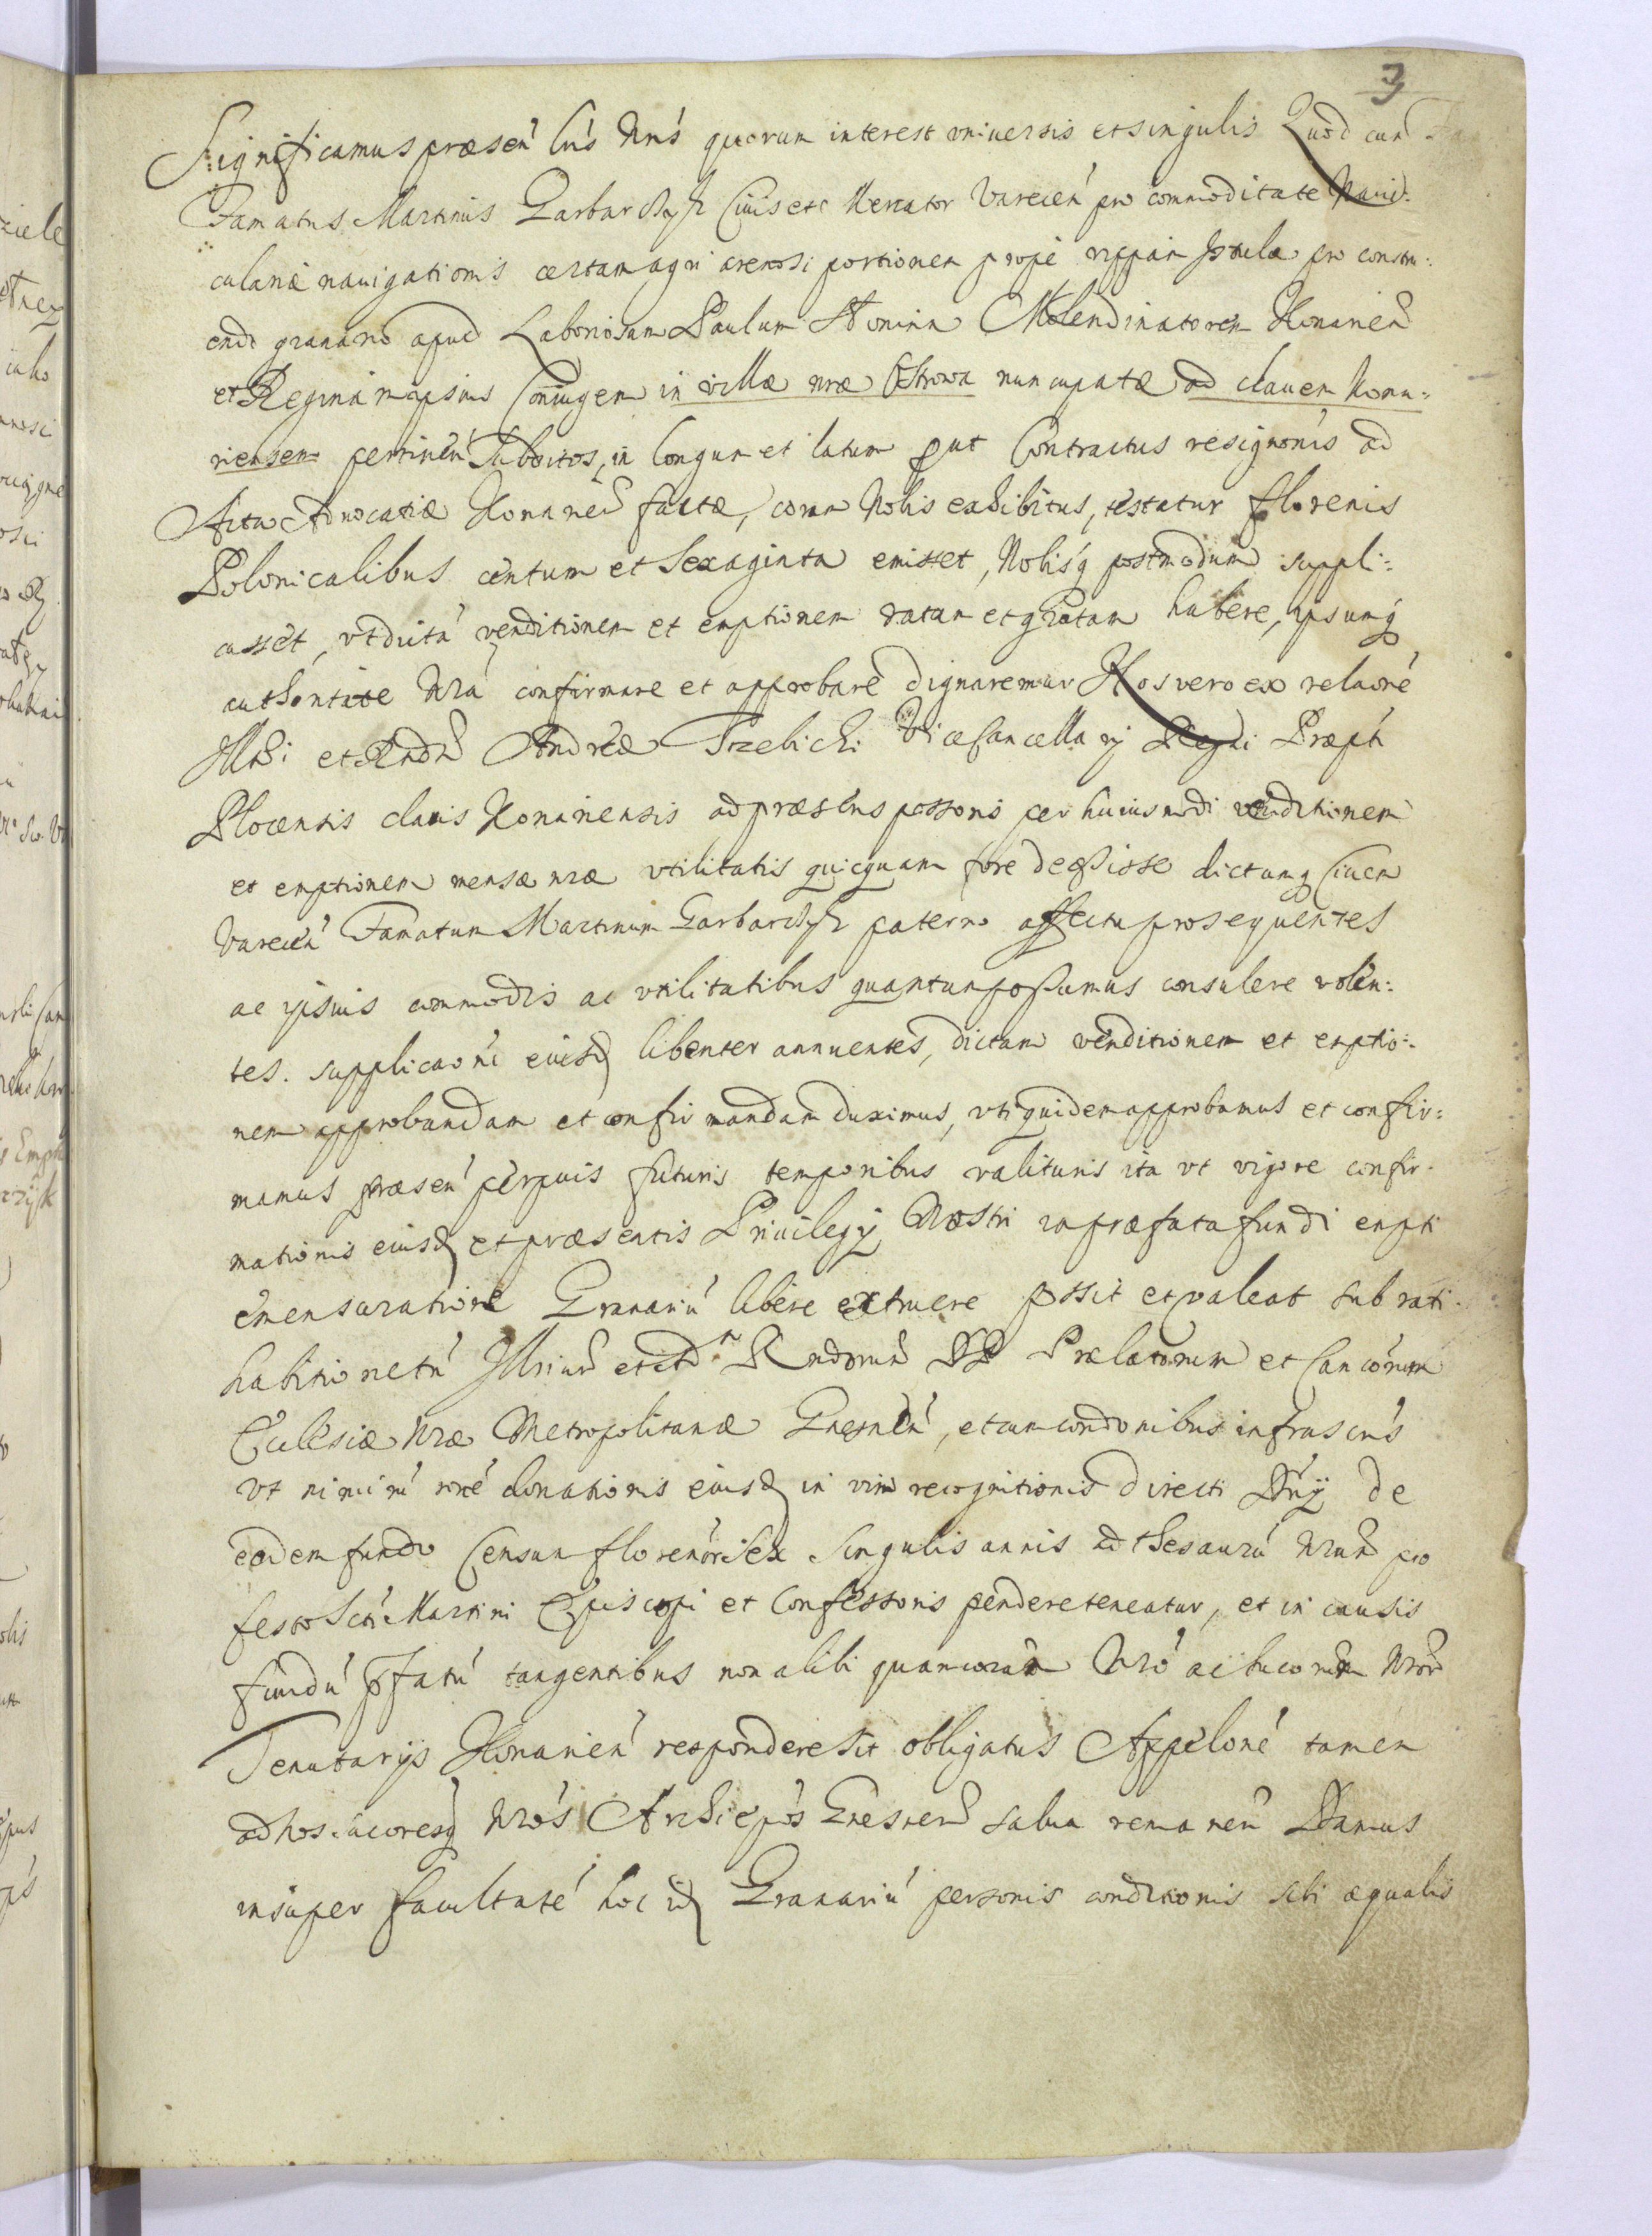 3
Significamus præsen̄ lr̄is nr̄is quorum interest vniuersis et singulis Quod cum
Famatus Martinus Garbarchyk Ciuis et Mercator Varecen̄ pro commoditate Naui-
culariæ nauigationis certam agri arenosi portionem prope rippam Istulæ pro constru:
endo granario apud Laboriosum Paulum Molendinatorem Konarien̄
et Reginam ipsius Coniugem in villæ nr̄æ Ostrowa nuncupatæ ad clauem Kona=
riensem pertinen̄ Subditos, in longum et latum prout Contractus resignaōnis ad
Acta Aduocatiæ Konarien̄ factæ, coram Nobis exhibitus, testatur florenis
Polonicalibus centum et Sexaginta emisset, Nobisq postmodum suppli:
casset, vt dictā venditionem et emptionem ratam et gratam habere, ipsamq
authoritate nr̄a confirmare et approbare dignaremur Nos vero ex relaōne
Illr̄i et Rn̄di Andreæ Trzebicki Vicecancellarij Regni Præpti
Plocensis clauis Konariensis ad præsens possōris per huiusmodi venditionem
et emptionem mensæ nr̄æ vtilitatis quicquam fore decessisse dictumq Ciuem
Varecen̄ Famatum Martinum Garbarchyk paterno affectu prosequentes
ac ipsius commodis ac vtilitatibus quantum possumus consulere volen:
tes. supplicaōni eiusd libenter annuentes, dictam venditionem et emptio:
nem approbandam et confirmandam duximus, vti quidem approbamus et confir:
mamus præsen̄ perpuis futuris temporibus valituris ita vt vigore confir-
mationis eiusd et præsentis Priuilegij Nostri in præfata fundi empti
emensuratione Granariū libere extruere possit et valeat sub rati-
habitione tn̄ Illr̄ium et Rn̄dorum DD Prælatorum et Canōcorum
Ecclesiæ Nr̄æ Metropolitanæ Gnesnen̄, et cum condōnibus infrascrīs
vt nimirū rōne donationis eiusd in vim recognitionis directi Dn̄ij de
eodem fundo Censum florenōr Sex singulis annis ad thesaurū nr̄um pro
festo Scti Martini Episcopi et Confessoris pendere teneatur, et in causis
fundū p̄fatū tangentibus non alibi quam coram Nr̄o ac succorum Nr̄or
Tenutarijs Konarien̄ respondere sit obligatus Appelōne tamen
ad nos succoresq nr̄os Archiepōs Gnesnen̄ salua remanen̄ Damus
insuper facultatē hoc id Granariū personis conditionis sibi æqualis